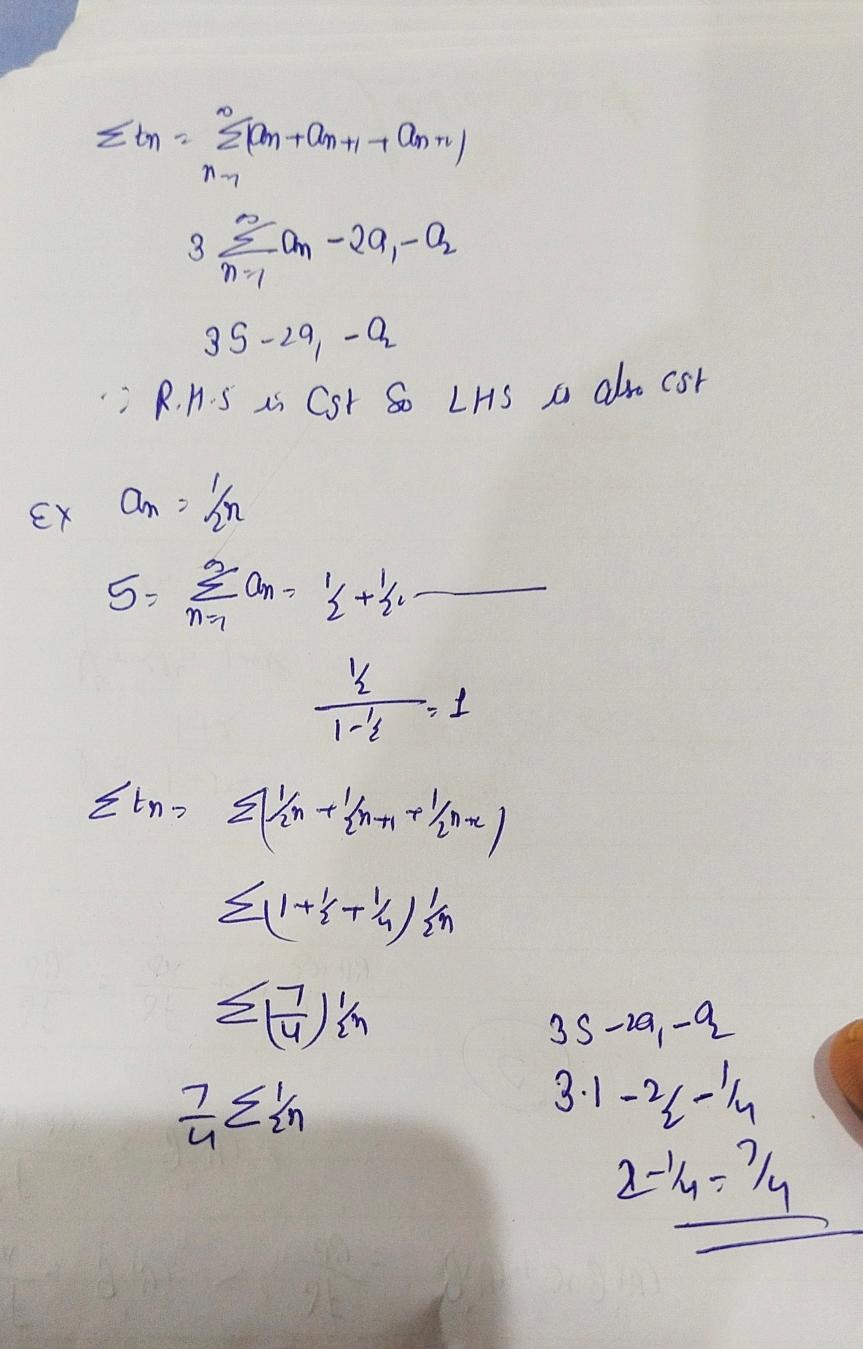 Σtn = ∞Σn=1 (an + an+1 + an+2)
3 ∞Σn=1 an - 2a1 - a2
3S - 2a1 - a2
∵ R.H.S is Cst So LHS is also cst
Ex an = 1/2^n
S = ∞Σn=1 an = 1/2 + 1/2^2 ———
(1/2)/(1 - 1/2) = 1
Σtn = Σ(1/2^n + 1/2^n+1 + 1/2^n+2)
Σ(1 + 1/2 + 1/4) 1/2^n
Σ(7/4) 1/2^n
7/4 Σ 1/2^n
3S - 2a1 - a2
3·1 - 2/2 - 1/4
2 - 1/4 = 7/4